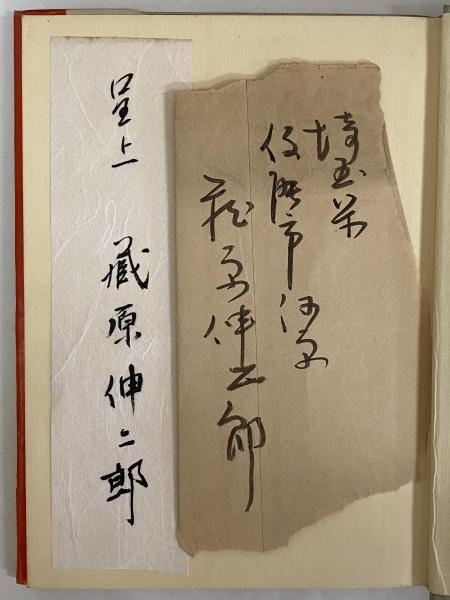 埼玉県
飯能市河原
蔵原伸二郎
呈上 蔵原伸二郎